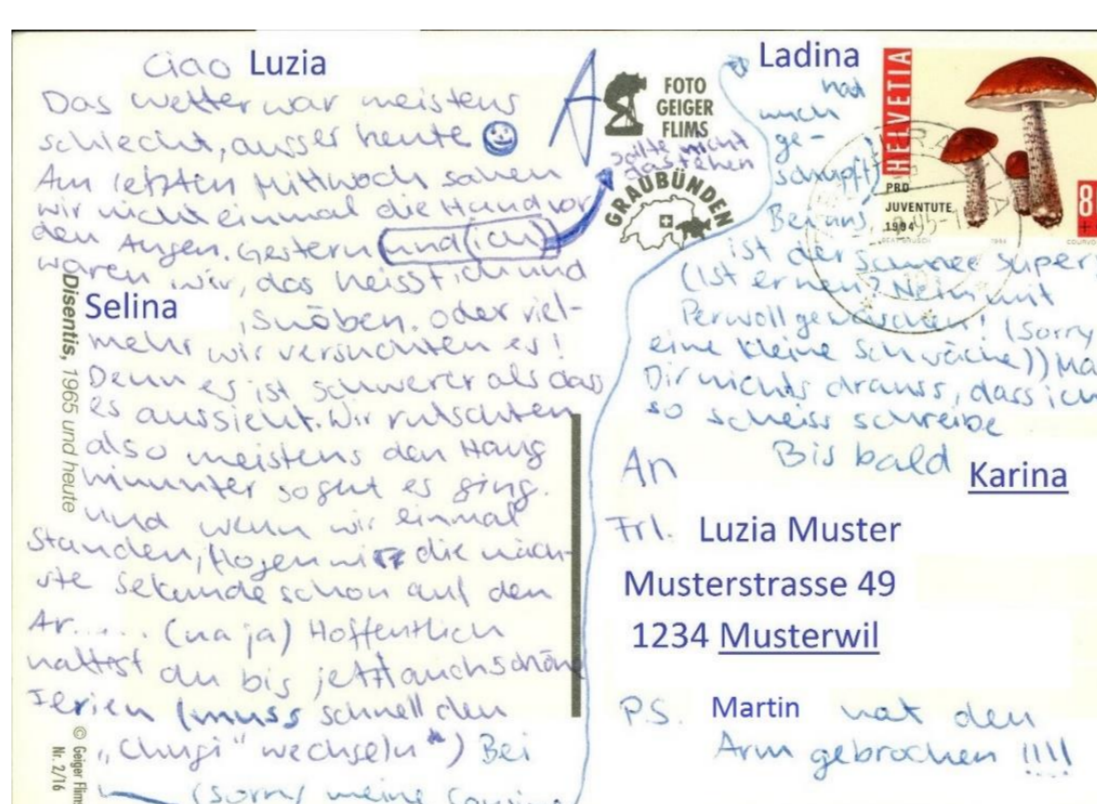 Ciao Luzia
Das Wetter war meistens
schlecht, ausser heute
Am letzten Mittwoch sahen
wir nicht einmal die Hand vor
den Augen. Gestern (und (ich))
waren wir, das heisst ich und
Selina, snöben. Oder viel-
mehr wir versuchten es!
Denn es ist schwerer als das
es aussieht. Wir rutschten
also meistens den Hang
hinunter so gut es ging.
Und wenn wir einmal
standen, flogen wir die näch-
ste Sekunde schon auf den
Ar...... (na ja) Hoffentlich
hattest du bis jetzt auch schöne
Ferien (muss schnell den
„Chugi" wechseln*) Bei
(sorry meine
A
sollte nicht
da stehen
FOTO
GEIGER
FLIMS
GRAUBÜNDEN
Ladina
hat
mich
ge-
schupft)
Bei uns
ist der Schnee super
(Ist er neu? Nein mit
Perwoll gewaschen! (Sorry
eine kleine Schwäche)) Ma
Dir nichts draus, dass ich
so scheiss schreibe
Bis bald Karina
HELVETIA
PRO
JUVENTUTE
1994
8
+
1994
An
Frl. Luzia Muster
Musterstrasse 49
1234 Musterwil
P.S. Martin hat den
Arm gebrochen !!!!
Disentis, 1965 und heute
© Geiger Flims
Nr. 2/16